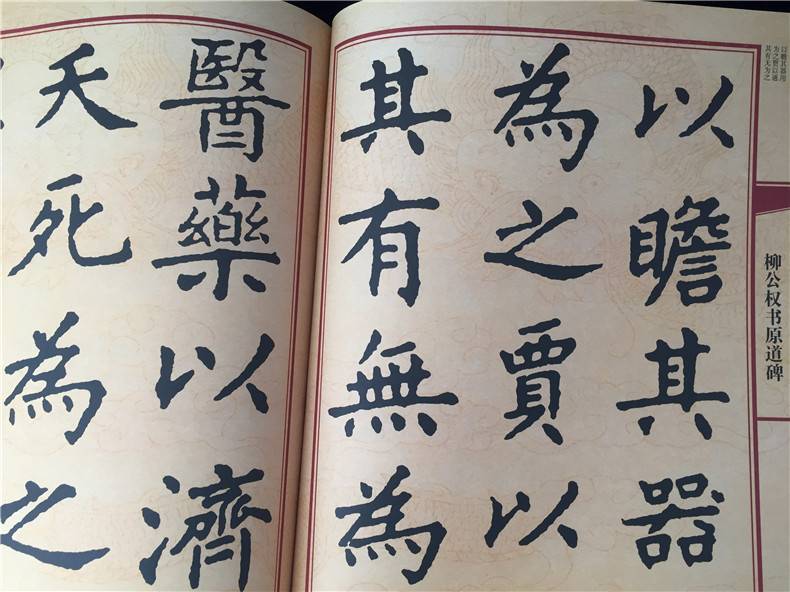 以瞻其器用
为之贾以通
其有无为之
柳公权书原道碑
以瞻其器
為之賈以
其有無為
醫藥以濟
夭死為之